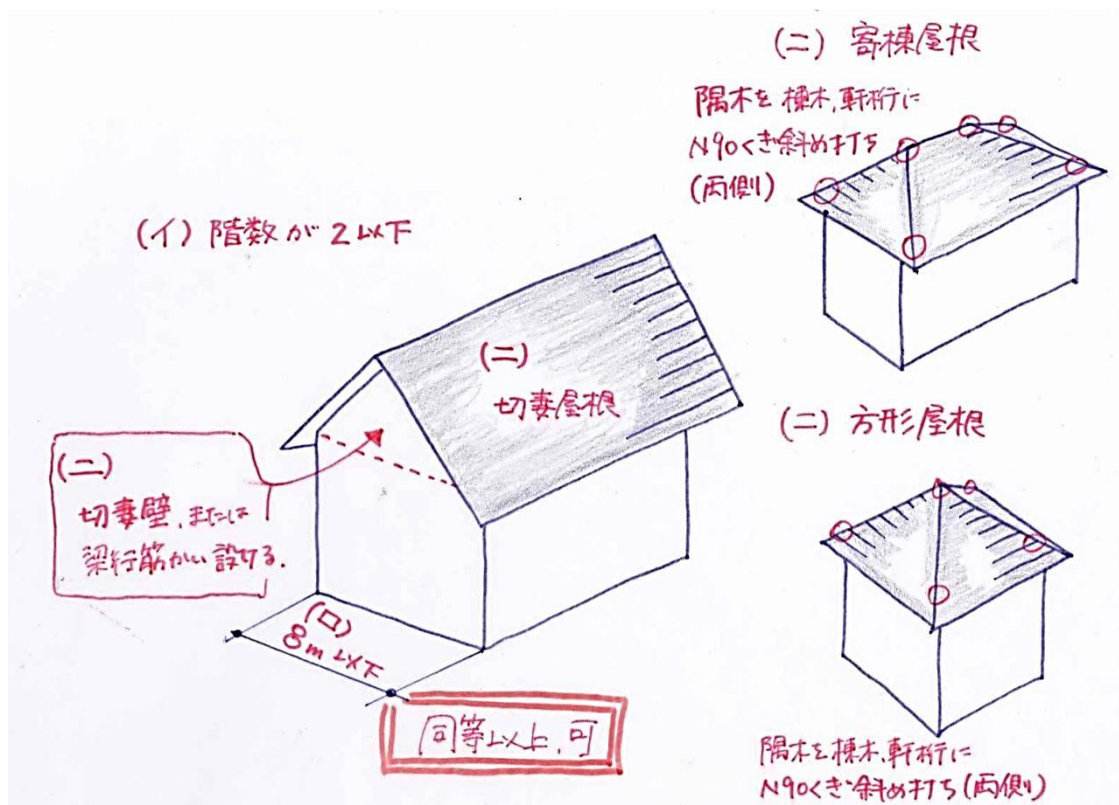 (イ) 階数が2以下
(二)
切妻屋根
(二)
切妻壁、または
梁行筋かい設ける.
(ロ)
8m以下
同等以上、可
(二) 寄棟屋根
隅木を棟木、軒桁に
N90くぎ斜め打ち
(両側)
(二) 方形屋根
隅木を棟木、軒桁に
N90くぎ斜め打ち(両側)